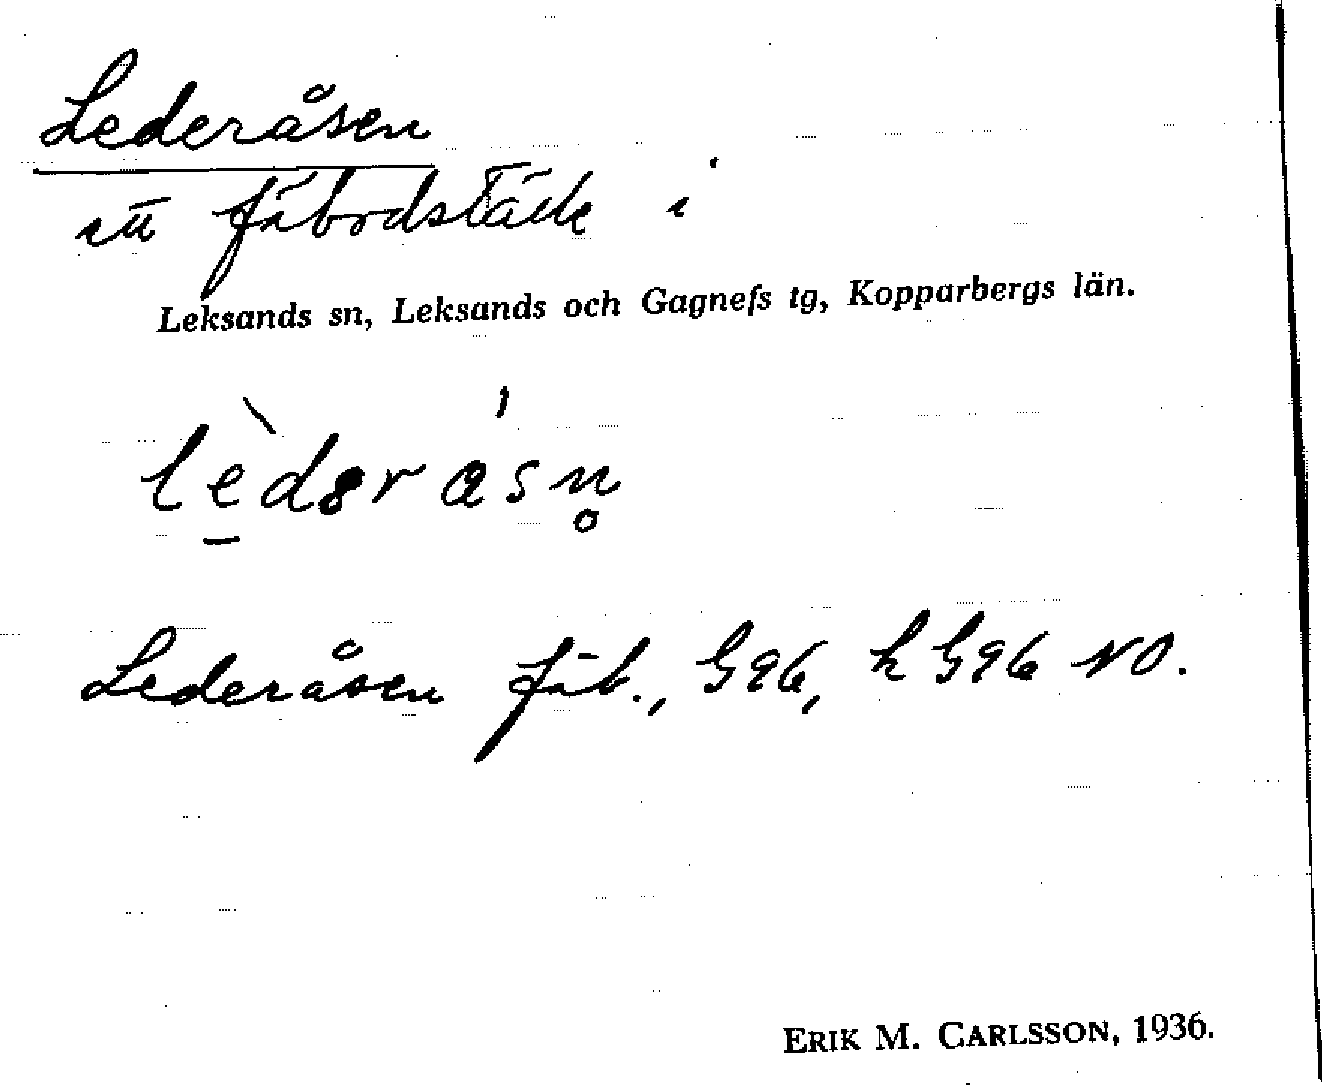 Lederåsen
ett fäbodställe i
Leksands sn, Leksands och Gagnefs tg, Kopparbergs län.
Lederåsen fäb., G96, h G96 NO.
ERIK M. CARLSSON, 1936.